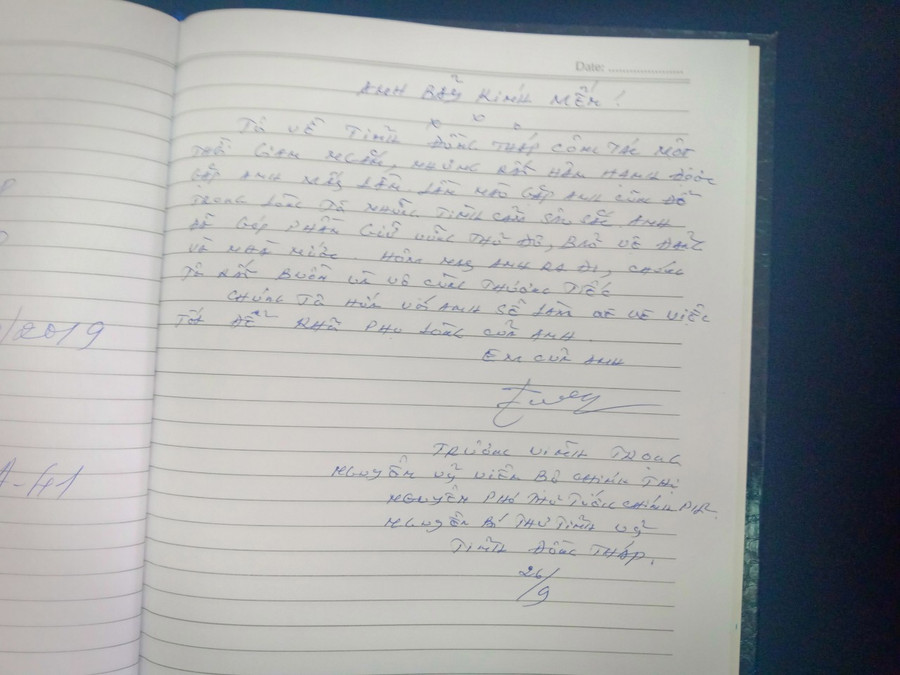 Date:
ANH BẢY KÍNH MẾN!
x x x
Tôi VỀ TỈNH ĐỒNG THÁP CÔNG TÁC MỘT
THỜI GIAN NGẮN, NHƯNG RẤT HÂN HẠNH ĐƯỢC
GẶP ANH MẤY LẦN. LẦN NÀO GẶP ANH CŨNG ĐỂ
TRONG LÒNG TÔI NHỮNG TÌNH CẢM SÂU SẮC. ANH
ĐÃ GÓP PHẦN GIỮ VỮNG THỦ ĐÔ, BẢO VỆ ĐẢNG
VÀ NHÀ NƯỚC. HÔM NAY ANH RA ĐI, CHÚNG
TÔI RẤT BUỒN VÀ VÔ CÙNG THƯƠNG TIẾC
CHÚNG TÔI HỨA VỚI ANH SẼ LÀM VIỆC
TỐT ĐỂ PHỤ LÒNG CỦA ANH.
EM CỦA ANH
TRƯƠNG VĨNH TRỌNG
NGUYÊN UỶ VIÊN BỘ CHÍNH TRỊ
NGUYÊN PHÓ THỦ TƯỚNG CHÍNH PHỦ
NGUYÊN BÍ THƯ TỈNH UỶ
TỈNH ĐỒNG THÁP.
26/9
/2019
A-41